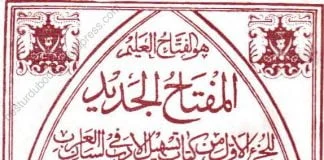 هو الفتاح العليم
المفتاح الجديد
للجزء الاول من كتاب تسهيل الادب فى لسان العرب